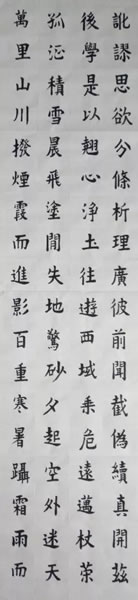 訛謬思欲分條析理廣彼前聞截偽續真開茲
後學是以翹心淨土往遊西域乘危遠邁杖策
孤征積雪晨飛塗間失地驚砂夕起空外迷天
萬里山川撥煙霞而進影百重寒暑躡霜雨而